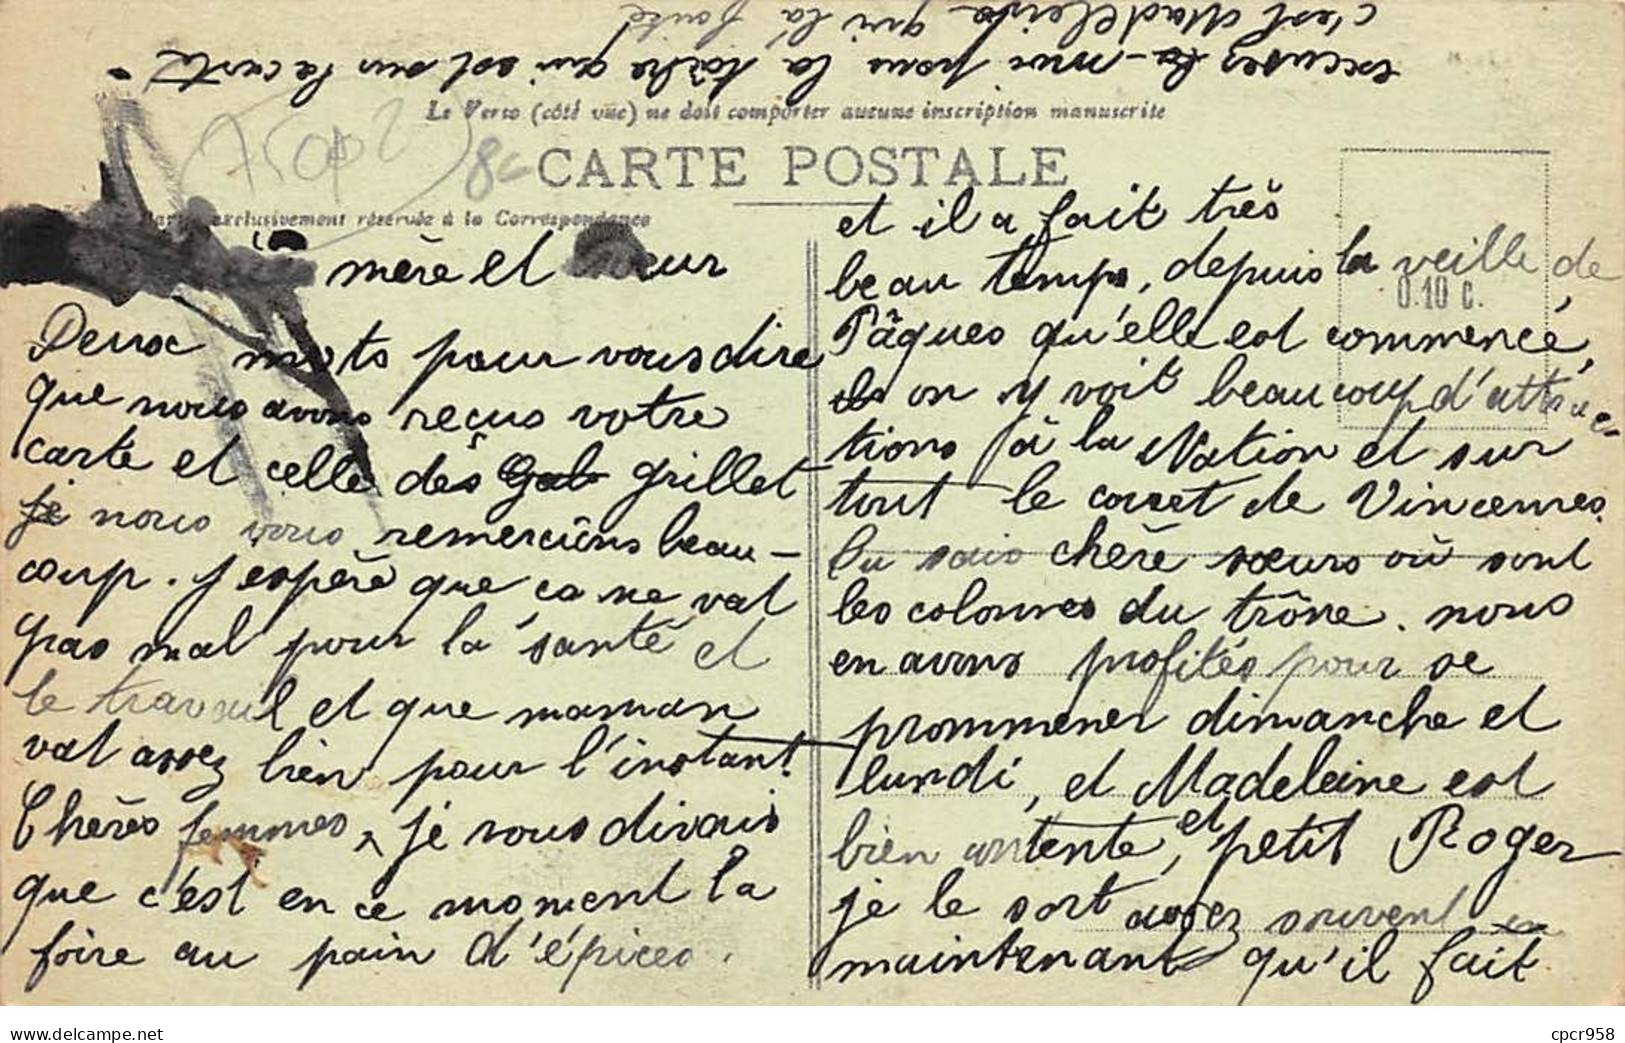 excusez-moi pour la tâche qui est sur la carte
c'est Madeleine qui l'a faite
Le Verso (côté vue) ne doit comporter aucune inscription manuscrite
8c
CARTE POSTALE
exclusivement réservée à la Correspondance
mère et sœur
Deux mots pour vous dire
que nous avons reçus votre
carte et celle des Gab grillet
je nous vous remercions beau-
coup. j'espère que ca ne vat
pas mal pour la santé et
le travail et que maman
vat assez bien pour l'instant.
Chères femmes, je vous dirais
que c'est en ce moment la
foire au pain d'épices.
et il a fait très
beau temps, depuis la veille de
0.10 c.
Pâques qu'elle est commencé,
on y voit beaucoup d'attrac-
tions à la Nation et sur
tout le cours de Vincennes.
Tu sais chère sœurs où sont
les colonnes du trône. nous
en avons profités pour se
prommener dimanche et
lundi, et Madeleine est
bien contente, et petit Roger
je le sort assez souvent
maintenant qu'il fait
cpcr958
delcampe.net